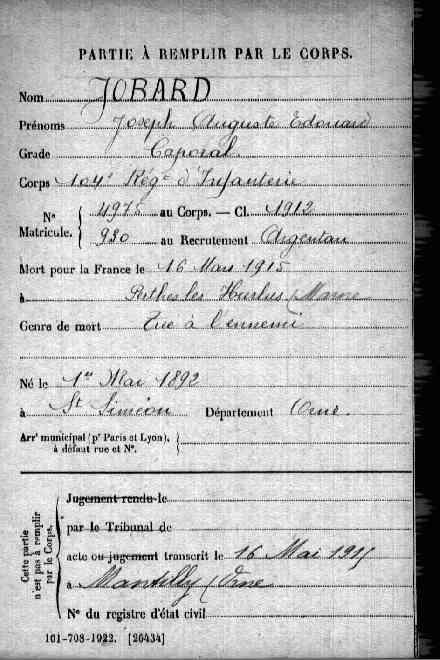 PARTIE À REMPLIR PAR LE CORPS.
Nom JOBARD
Prénoms Joseph Auguste Edouard
Grade Caporal
Corps 104e Rég.t d'Infanterie
N° Matricule. { 4975 au Corps. — Cl. 1912
930 au Recrutement Argentan
Mort pour la France le 16 Mars 1915
à Perthes les Hurlus (Marne
Genre de mort Tué à l'ennemi
Né le 1er Mai 1892
à St Siméon Département Orne.
Arrt municipal (pr Paris et Lyon), à défaut rue et N°. {
Cette partie n'est pas à remplir par le Corps. {
Jugement rendu le
par le Tribunal de
acte ou jugement transcrit le 16 Mai 1915
à Mantilly (Orne
N° du registre d'état civil
101-708-1922. [26434]